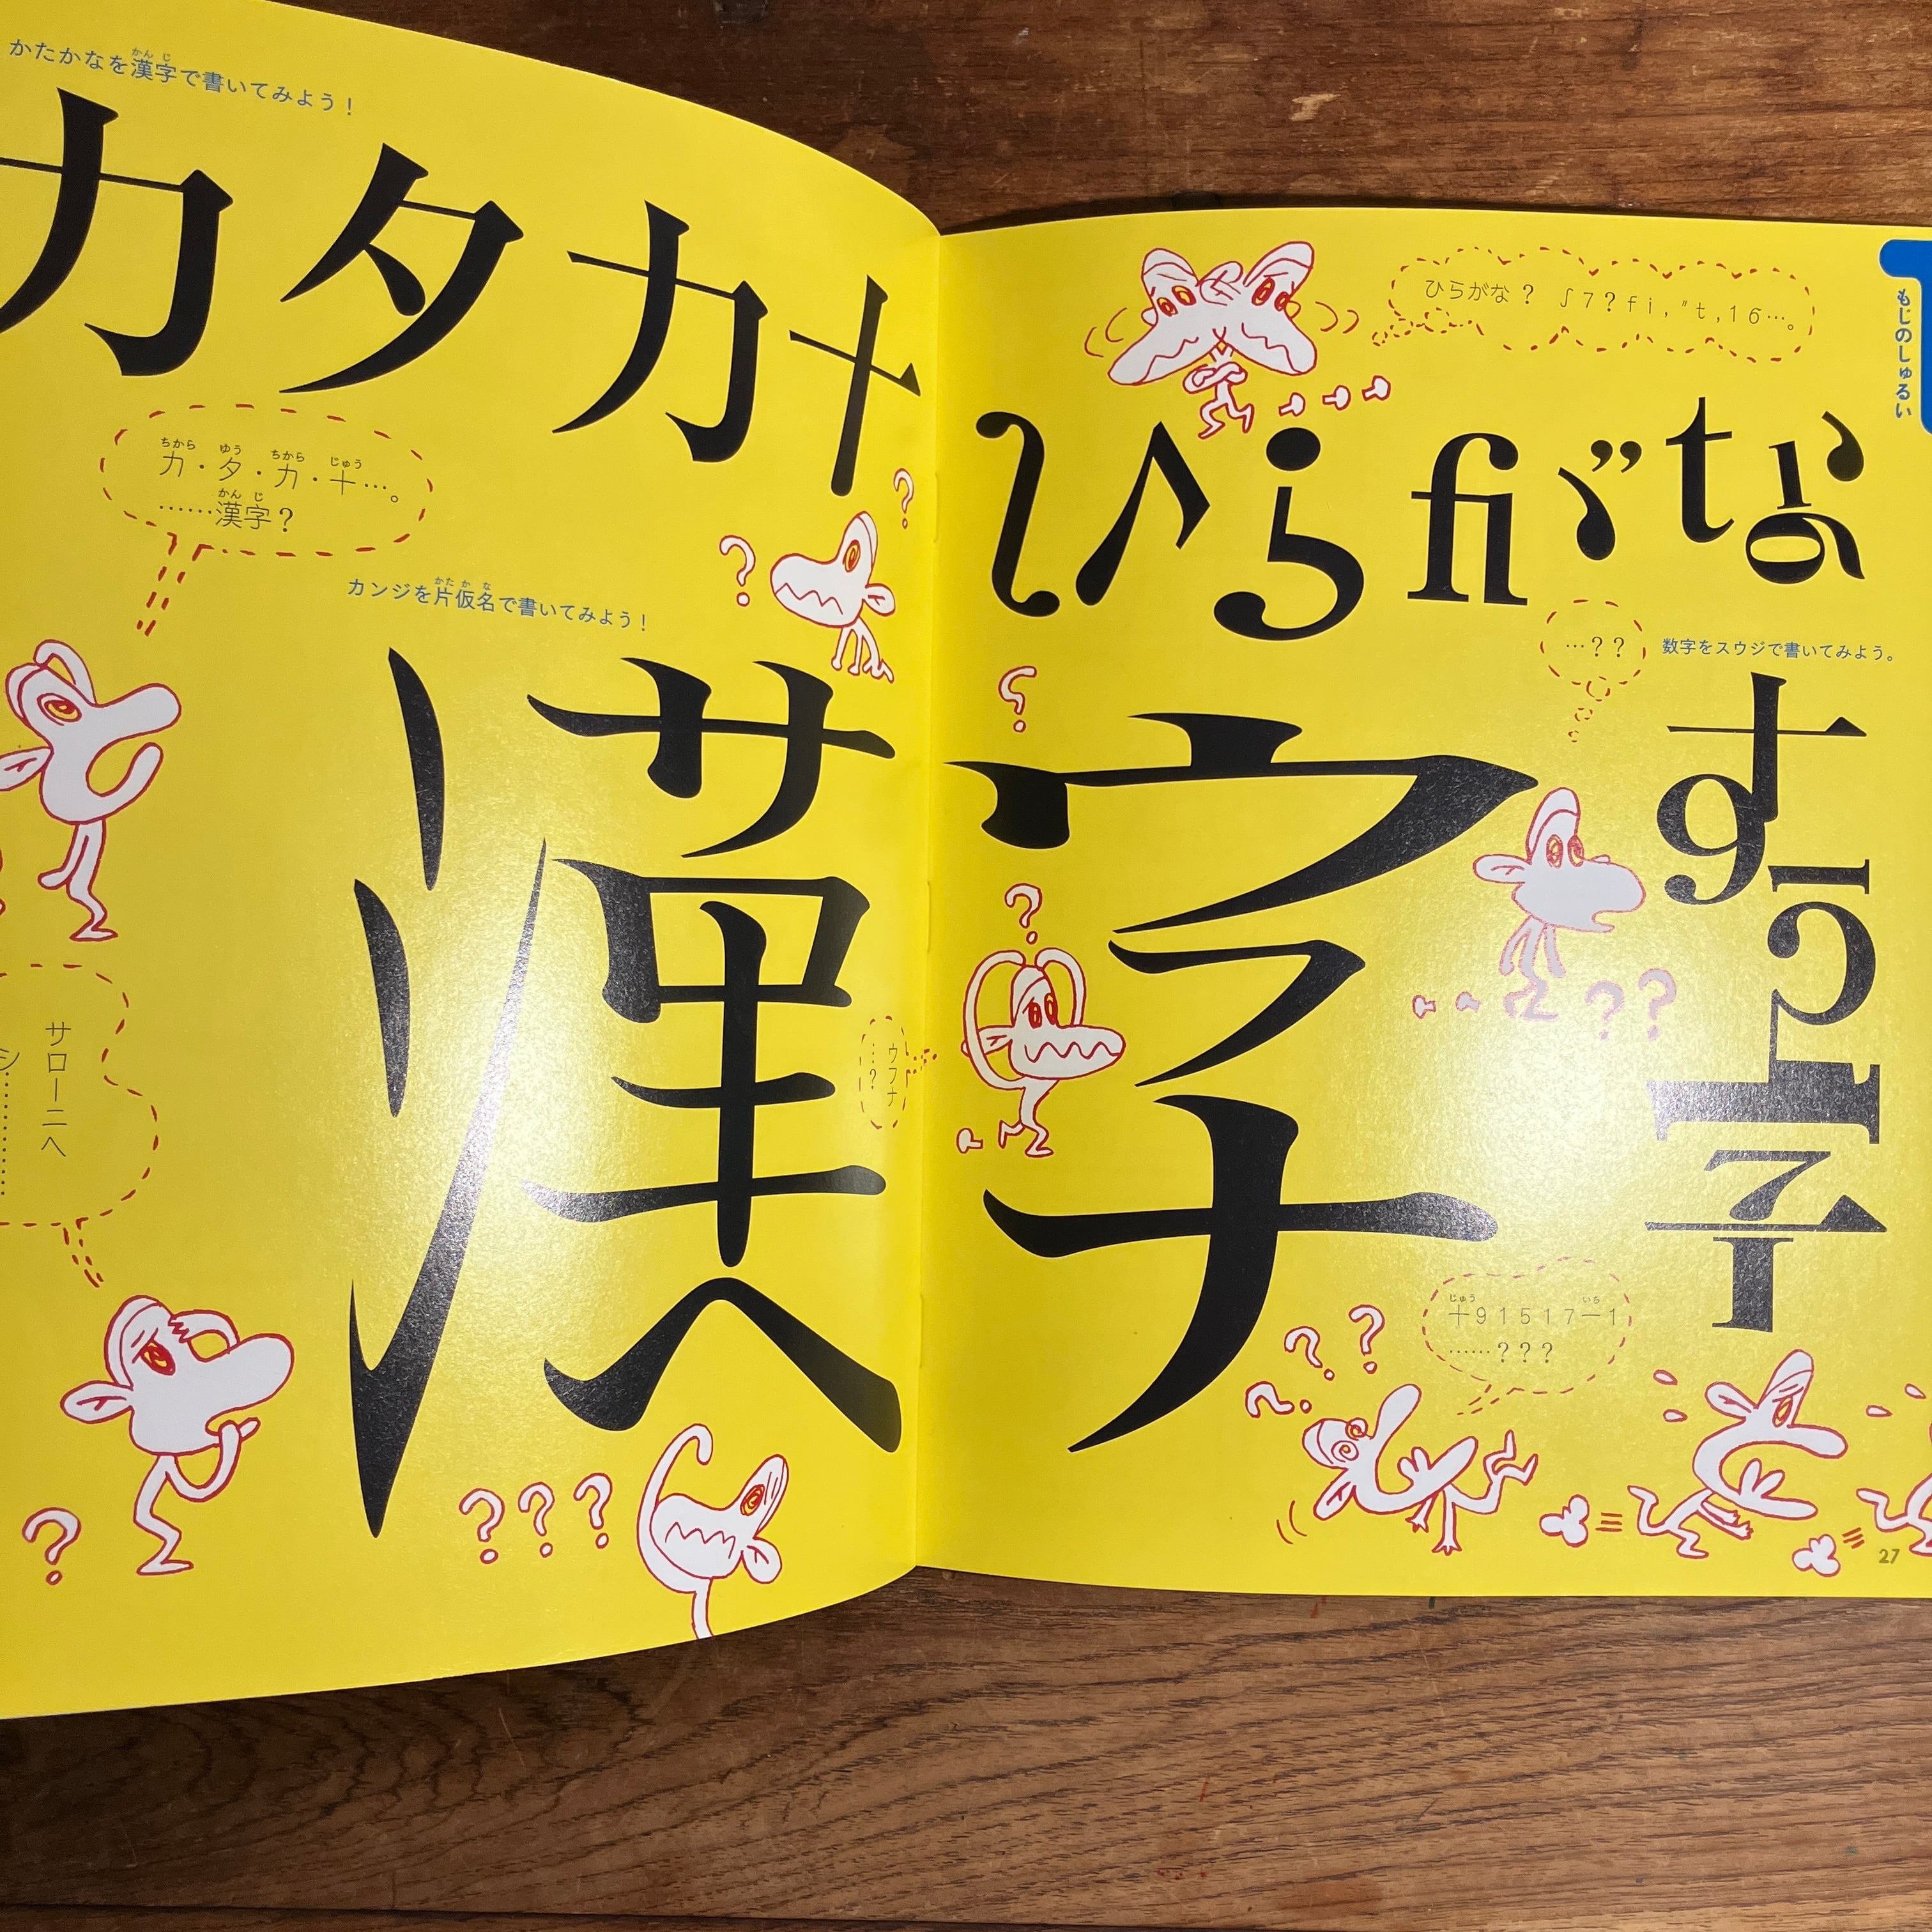 かたかなを漢字で書いてみよう！
カタカナ
力・夕・力・十…。
……漢字？
カンジを片仮名で書いてみよう！
漢字
サローニヘ
シ………
ウフナ
…？
ひらがな？ ∫7？fi,〃t,16…。
ひらがな
もじのしゅるい
…？？
数字をスウジで書いてみよう。
すう字
十91517一1
……？？？
27